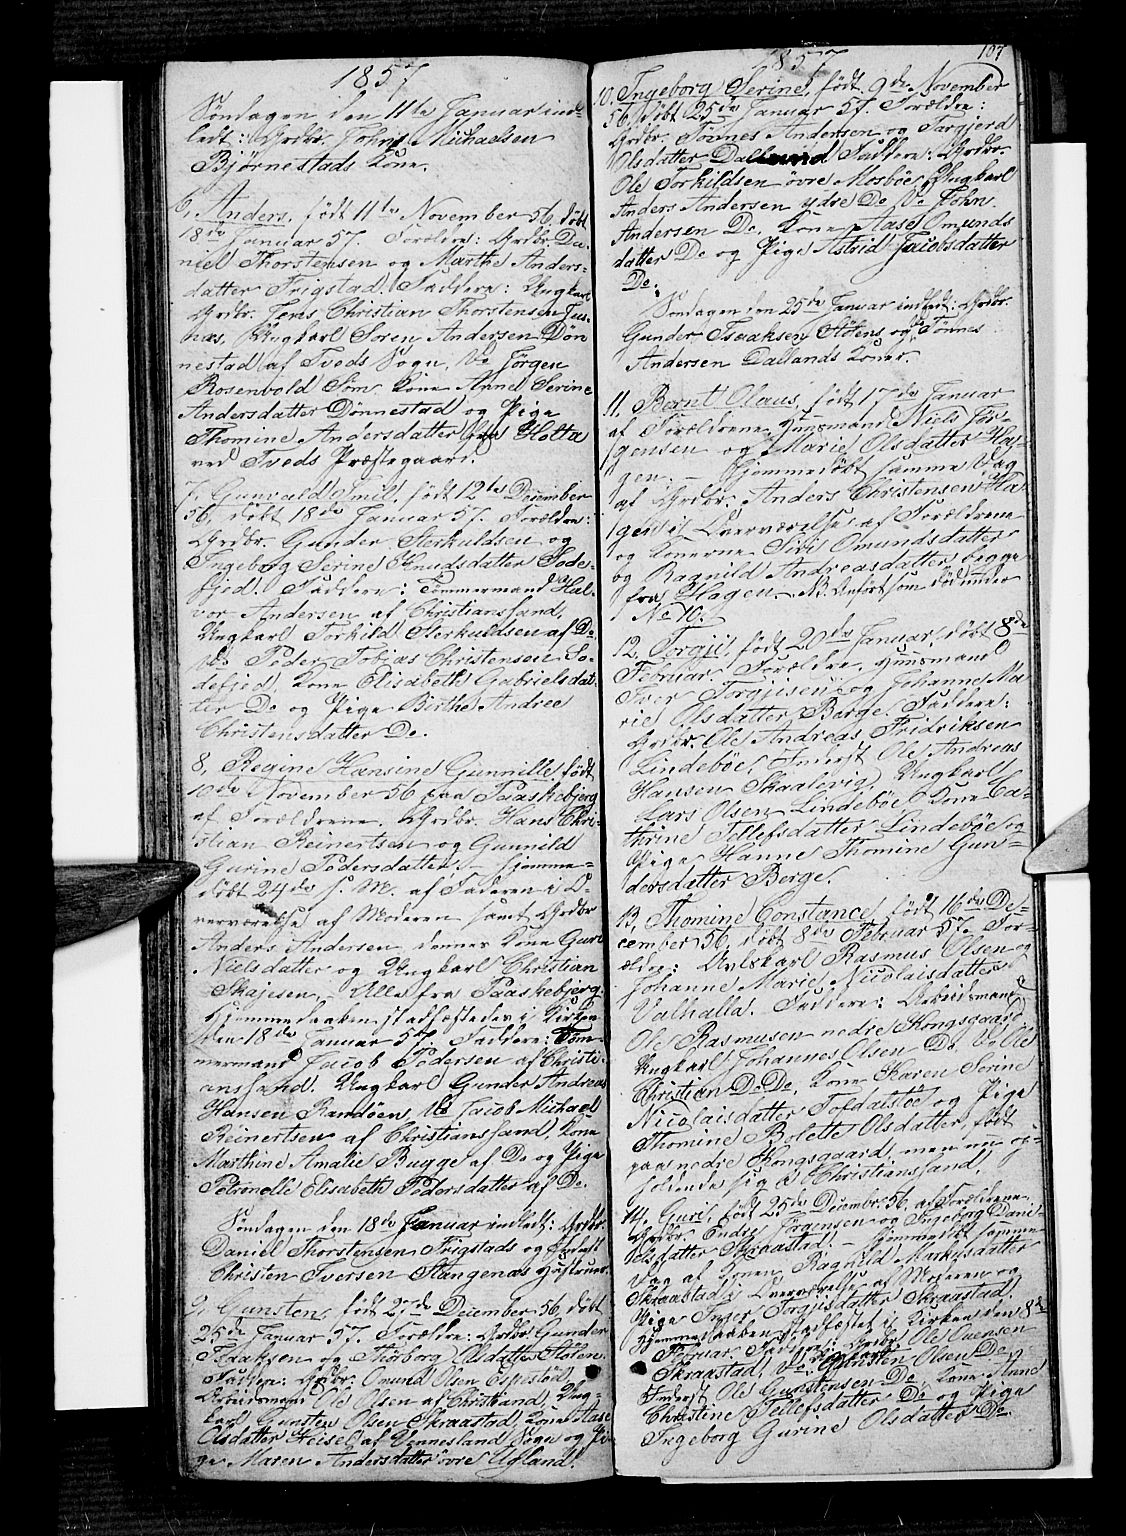 1857
Søndagen den 11te Januar ind-
ledt: Grdbr. John Michaelsen
Bjørnestads Kone.
6, Anders, født 11te November 56 døbt
18de Januar 57. Forældre: Grdbr. Da-
niel Thorstensen og Marthe Anders-
datter Frigstad. Faddere: Ungkarl
Grdbr. Jens Christian Thorstensen
Ungkarl Søren Andersen Døn-
nestad af Tveds Sogn, Do Jørgen
Rosenvold Søm, Kone Anne Serine
Andersdatter Dønnestad og Pige
Thomine Andersdatter Holta
ved Tveds Præstegaard.
7, Gunvald Emil, født 12te December
56, døbt 18de Januar 57. Forældre:
Grdbr. Gunder Sterkuldsen og
Ingeborg Serine Knudsdatter Tode-
fjed. Faddere: Tømmermand Hal-
vor Andersen af Christianssand,
Ungkarl Torkild Sterkuldsen af Do
Do Peder Tobias Christensen To-
defjed, Kone Elisabeth Gabrielsdat-
ter Do og Pige Birthe Andree
Christensdatter Do.
8, Regine Hansine Gunnille født
10de November 56 paa Paaskebjerg
af Forældrene, Grdbr. Hans Chri-
stian Reinertsen og Gunnild
Gurine Pedersdatter. – Hjemme-
døbt 24de s. M. af Faderen i O-
verværelse af Moderen samt Grdbr
Anders Andersen, dennes Kone Guri
Nielsdatter og Ungkarl Christian
Skajesen, Alle fra Paaskebjerg.
Hjemmedaaben stadfæstedes i Kirken
den 18de Januar 57. Faddere: Tøm-
mermand Jacob Pedersen af Christi-
anssand, Ungkarl Gunder Andreas
Hansen Randøen, Do Jacob Michael
Reinertsen af Christianssand, Kone
Marthine Amalie Bugge af Do og Pige
Petronelle Elisabeth Pedersdatter af Do.
Søndagen den 18de Januar indledt: Grdbr.
Daniel Thorstensen Frigstads og Inderst
Christen Iversen Stangenæs Hustruer.
9, Gunsten, født 27de December 56, døbt
25de Januar 57. Forældre: Grdbr. Gunder
Isaaksen og Thorborg Olsdatter Støten.
Faddere: Grdbr. Omund Olsen Espestøl,
Arbeidsmand Ole Olsen af Christiansand, Ung-
karl Gunsten Olsen Skraastad, Kone Aase
Olsdatter Heisel af Vennesland Sogn og Pi-
ge Maren Andersdatter øvre Ugland.
1857
107
10. Ingeborg Serine, født 9de November
56, døbt 25de Januar 57. Forældre:
Grdbr. Tønnes Andersen og Targjerd
Olsdatter Dalland Faddere: Grdbr
Ole Torkildsen øvre Mosbøe, Ungkarl
Anders Andersen ydre Do, Do John
Andersen Do, Kone Aase Omunds
datter Do og Pige Astrid Jacobsdatter
Do.
Søndagen den 25de Januar indledt: Grdbr.
Gunder Isaaksen Støtens og Tønnes
Andersen Dallands Koner.
11, Bernt Olaus, født 17de Januar
af Forældrene Huusmand Niels Jør-
gensen og Marie Olsdatter Ha-
gen. – Hjemmedøbt samme Dag
af Grdbr. Anders Christensen Ha-
gen i Overværelse af Forældrene
og Konerne Siri Omundsdatter
og Ragnild Andreasdatter begge
fra Hagen. NB. Anført som død under
No 10.
12, Torgju, født 20de Januar, døbt 8de
Februar Forældre, Huusmand
Iver Torgjusen og Johanne Ma-
rie Olsdatter Berge. Faddere:
Grdbr. Ole Andreas Fridriksen
Lindebøe, Inderst Ole Andreas
Hansen Skaalevig, Ungkarl
Lars Olsen Lindebøe, Kone Ca-
thrine Tollefsdatter Lindebøe og
Pige Hanne Thomine Gun-
dersdatter Berge.
13, Thomine Constance, født 16de De-
cember 56, døbt 8de Februar 57. For-
ældre: Avlskarl Rasmus Olsen og
Johanne Marie Nicolaisdatter
Valhalla. Faddere: Arbeidsmand
Ole Rasmusen nedre Kongsgaard
Ungkarl Johannes Olsen Do, Do Ole
Christian Do Do, Kone Karen Serine
Nicolaisdatter Tofdalsbøe og Pige
Thomine Bolette Olsdatter, født
paa nedre Kongsgaard, men nu op-
holdende sig i Christianssand.
14, Guri, født 25de Decembr. 56, af Forældrene
Grdbr. Endre Jørgensen og Ingeborg Dani-
elsdatter Skraastad. – Hjemmedøbt samme
Dag af Konen Ragnild Markusdatter
Skraastad i Overværelse af Moderen og
Pige Inger Torgusdatter Skraastad.
Hjemmedaaben stadfæstet i Kirken den 8de
Februar Faddere: Grdbr. Ole Evensen
Skraastad, Do Gunsten Olsen Do
Inderst Ole Gunstensen Do, Kone Anne
Christine Tellefsdatter Do og Pige
Ingeborg Gurine Olsdatter Do.